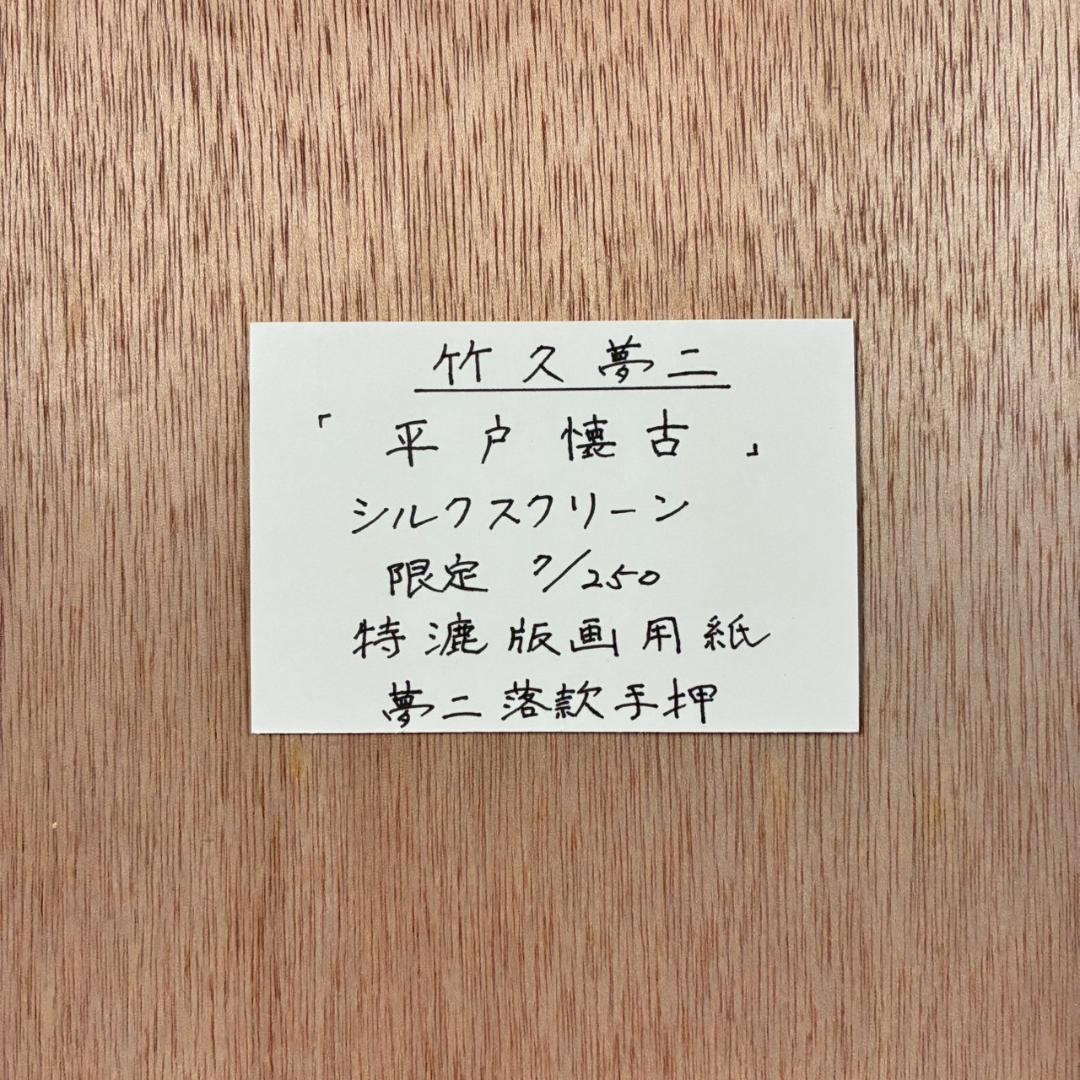 竹久夢二
「平戸懐古」
シルクスクリーン
限定 7/250
特漉版画用紙
夢二落款手押